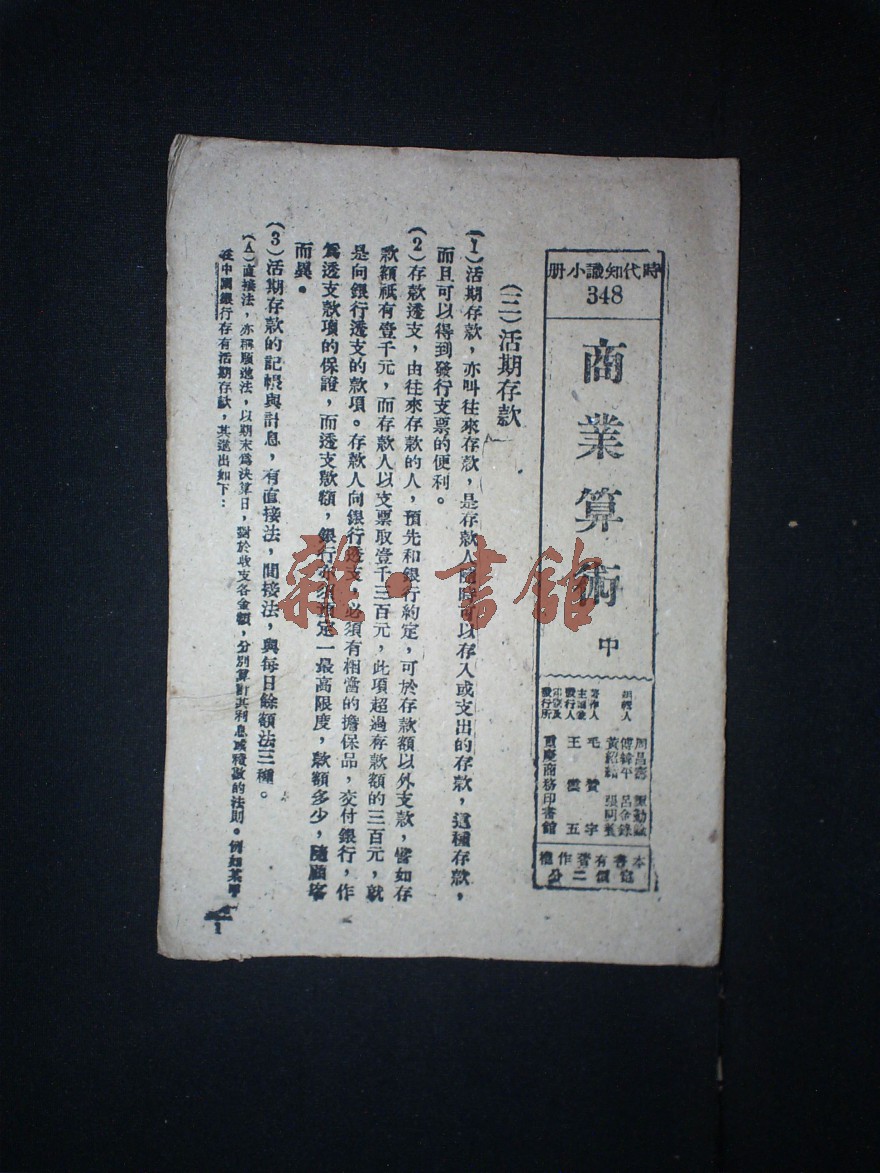 時代知識小册
348
商業算術 中
編輯人
周昌壽
傅緯平 呂金錄
黃紹緒
著作人
毛贊宇
主編兼發行人
王雲五
印刷及發行所
重慶商務印書館
本書有著作權
定價二分
(三)活期存款
(1)活期存款,亦叫往來存款,是存款人隨時可以存入或支出的存款,這種存款,
而且可以得到發行支票的便利。
(2)存款透支,由往來存款的人,預先和銀行約定,可於存款額以外支款,譬如存
款額祇有壹千元,而存款人以支票取壹千三百元,此項超過存款額的三百元,就
是向銀行透支的款項。存款人向銀行透支,必須有相當的擔保品,交付銀行,作
爲透支款項的保證,而透支款額,銀行亦須預定一最高限度,款額多少,隨顧客
而異。
(3)活期存款的記帳與計息,有直接法,間接法,與每日餘額法三種。
(A)直接法,亦稱順進法,以期末爲決算日,對於收支各金額,分別算計其利息或積數的法則。例如某甲
在中國銀行存有活期存款,其進出如下:
1
雜·書館